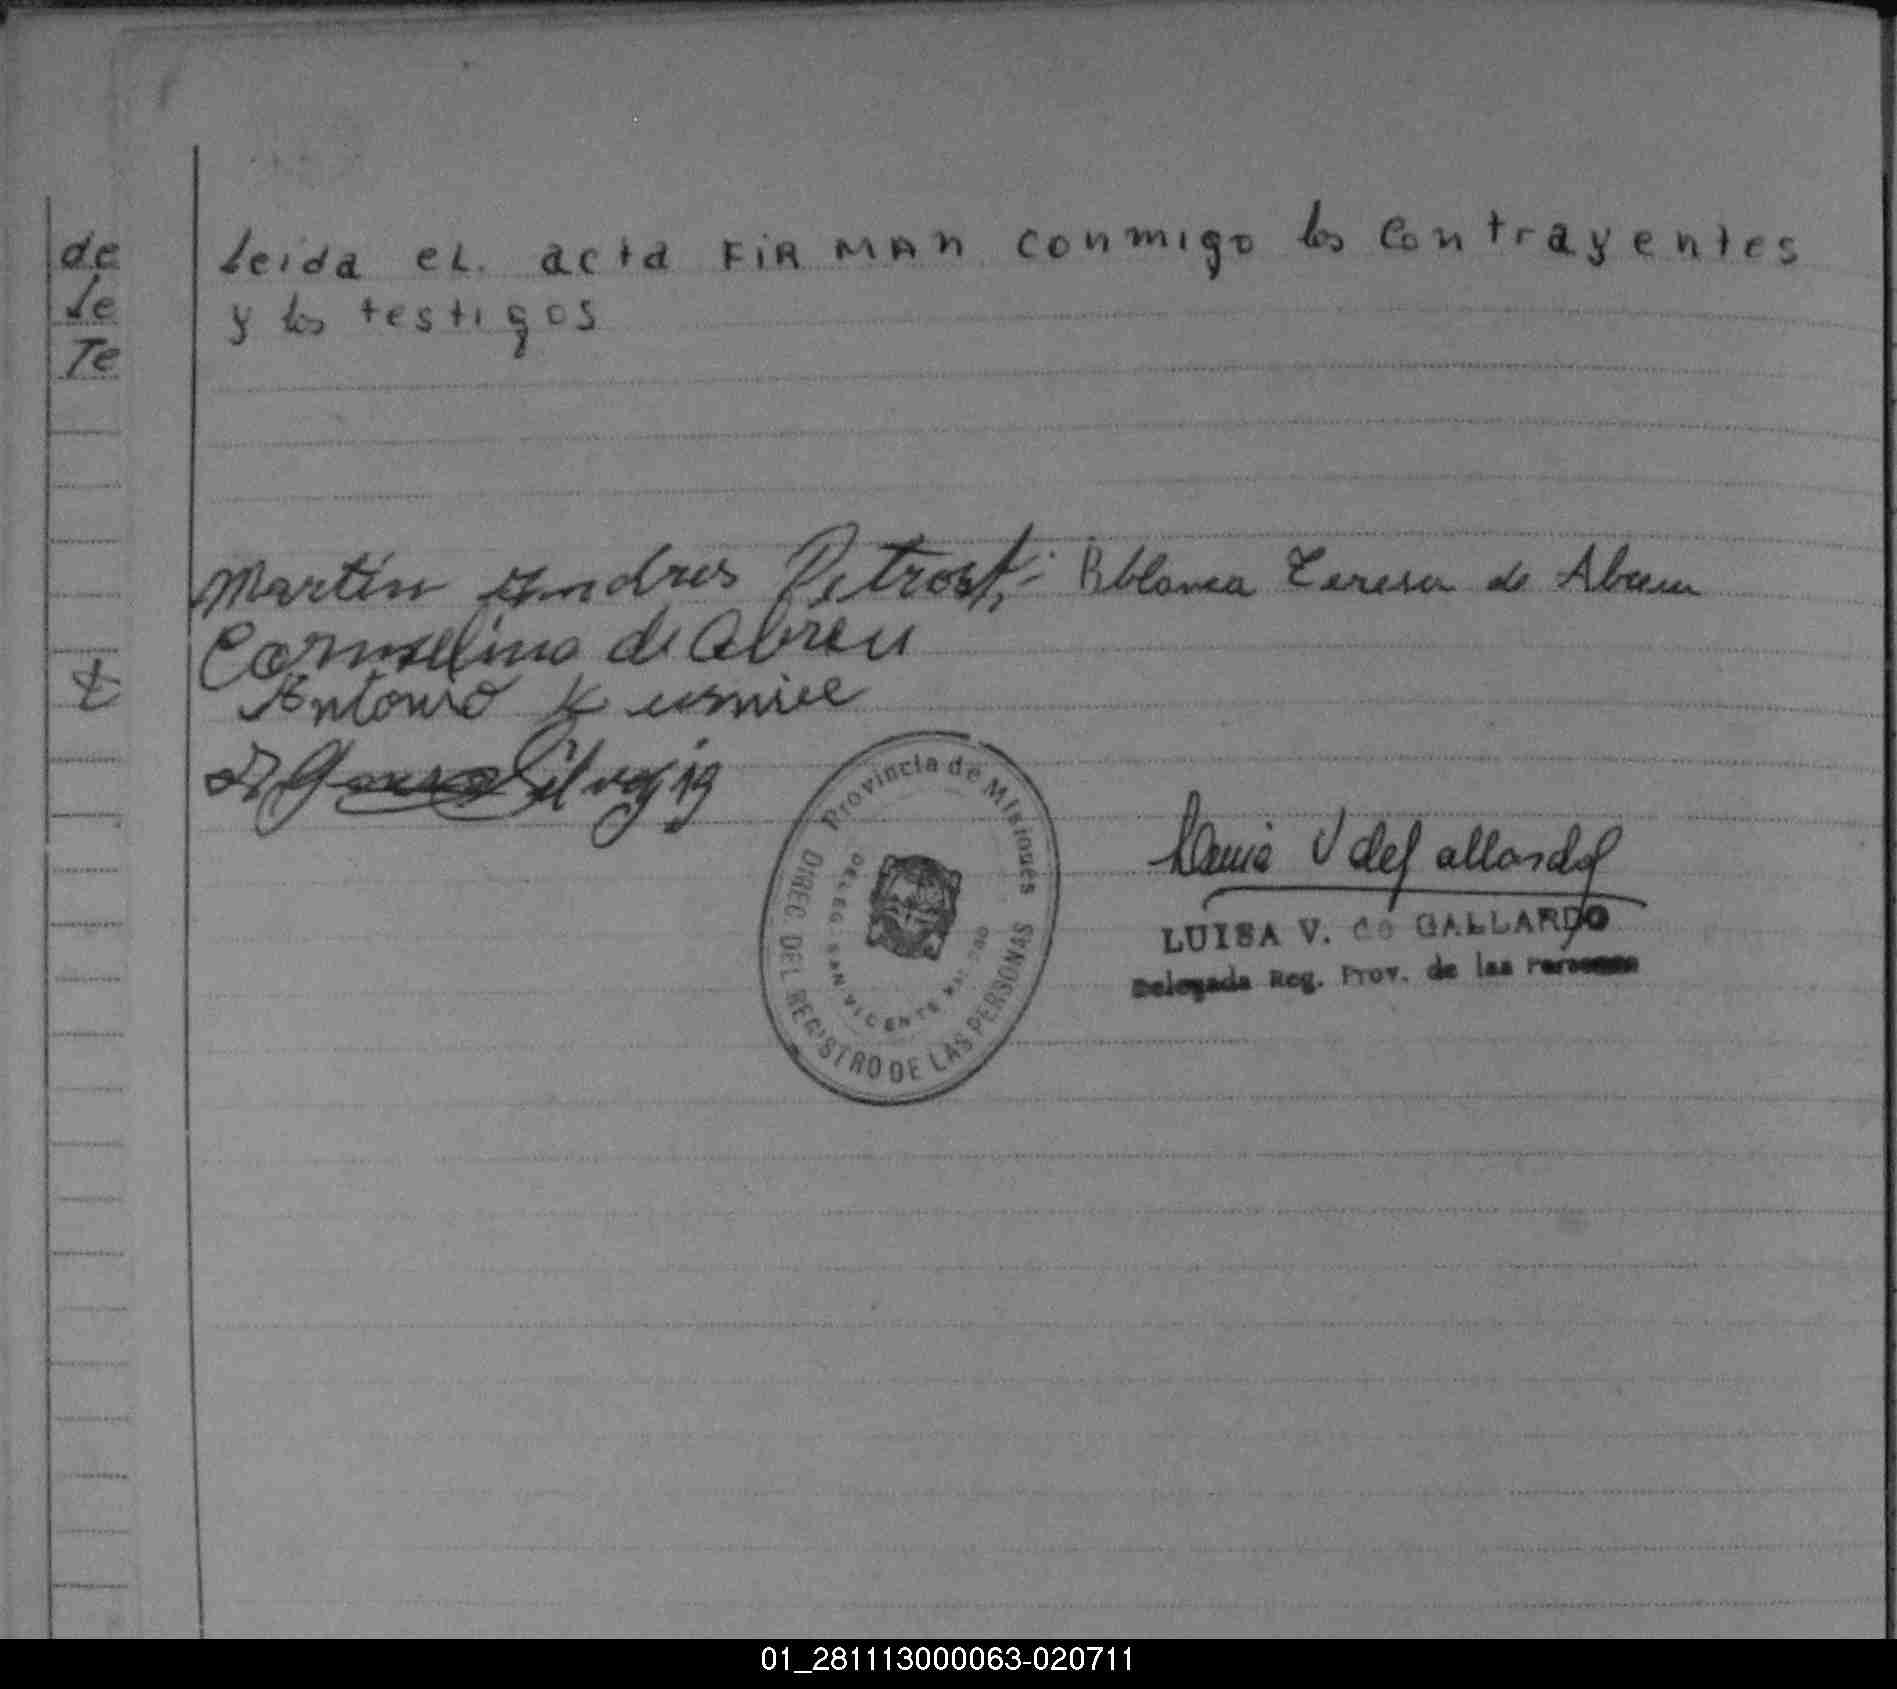 de
le
Te
leida eL. acta FiRMAn conmigo los contrayentes
y los testigos
Martín Andres Petroski Bblanca Teresa de Abreu
Carmelino de Abreu
Antonio K
Provincia de Misiones
DIREC. DEL REGISTRO DE LAS PERSONAS
DELEG. SAN VICENTE
LUISA V. de GALLARDO
Delegada Reg. Prov. de las Personas
01_281113000063-020711